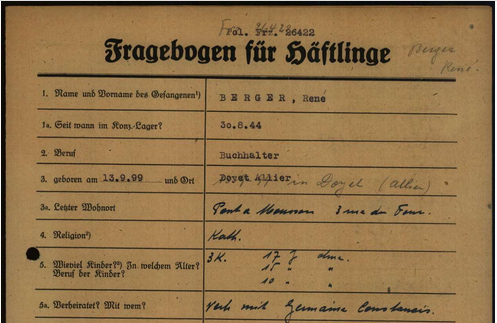 Pol. Frz. 26422
Fragebogen für Häftlinge
Berger
René
1. Name und Vorname des Gefangenen¹) BERGER, René
1a. Seit wann im Konz.-Lager? 30.8.44
2. Beruf Buchhalter
3. geboren am 13.9.99 und Ort Doyet Allier in Doyet (Allier)
3a. Letzter Wohnort Pont a Mousson 3 rue du Four.
4. Religion²) Kath.
5. Wieviel Kinder?³) In welchem Alter? 3 K. 17 J
Beruf der Kinder? 15 " "
10 " "
6a. Verheiratet? Mit wem? Verh mit Germaine